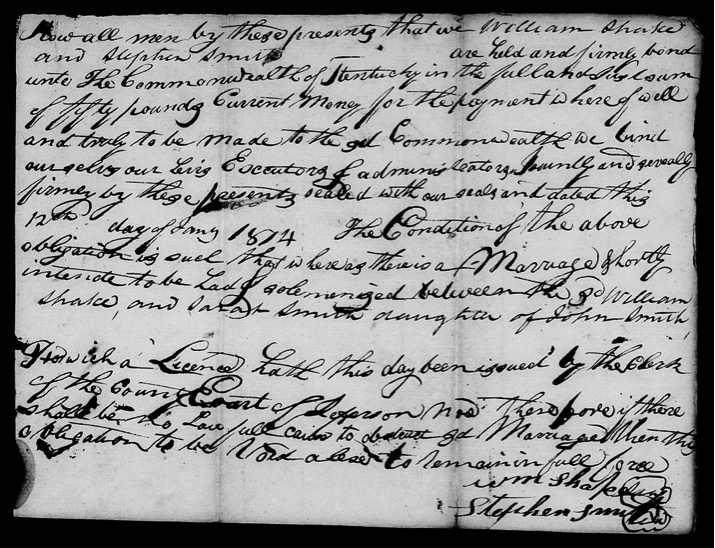 Know all men by these presents that we William Shake
and Stephen Smith are held and firmly bond
unto The Commonwealth of Kentucky in the full and Just sum
of fifty pounds Current Money for the payment where of well
and truly to be made to the sd Commonwealth we bind
our selvs our heirs Executors & administeators Jountly and severally
firmly by these presents sealed with our seals and dated this
12th day of 18 The Condition of the above
obligation is such that where as there is a Marriage Shortly
intende to be had & solemenized between the sd William
Shake, and Sarah Smith daughter of John Smith,
For which a Licence hath this day been issued by the Clerk
of the County Court of Jeferson Now Therefore if there
shall be no Law full caus to obstruct sd Marriage Then this
obligation to be Void alse to remain in full force
Wm Shake
Stephen Smith